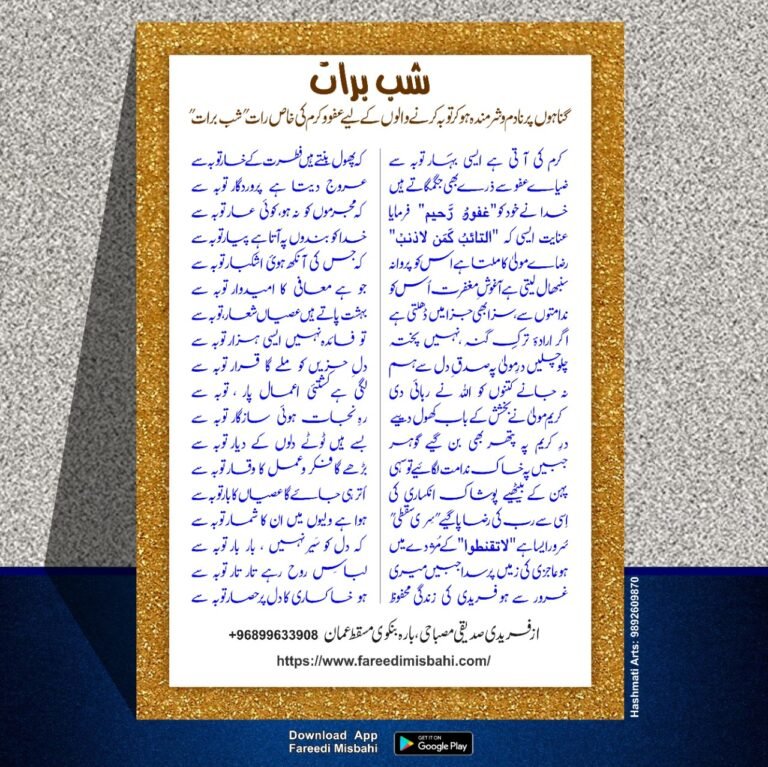 شب برات
گناہوں پر نادم و شرمندہ ہوکر توبہ کرنے والوں کے لیے عفو و کرم کی خاص رات "شب برات"
کرم کی آتی ہے ایسی بہار توبہ سے کہ پھول بنتے ہیں فطرت کے خار توبہ سے
ضیاے عفو سے ذرے بھی جگمگاتے ہیں عروج دیتا ہے پروردگار توبہ سے
خدا نے خود کو "غفورٌ رَّحیم" فرمایا کہ مجرموں کو نہ ہو، کوئی عار توبہ سے
عنایت ایسی کہ "التائبُ کَمَن لاذنبْ" خدا کو بندوں پہ آتا ہے پیار توبہ سے
رضاے مولیٰ کا ملتا ہے اس کو پروانہ کہ جس کی آنکھ ہوئ اشکبار توبہ سے
سنبھال لیتی ہے آغوشِ مغفرت اُس کو جو ہے معافی کا امیدوار توبہ سے
ندامتوں سے سزا بھی جزا میں ڈھلتی ہے بہشت پاتے ہیں عصیاں شعار، توبہ سے
اگر ارادۂ ترکِ گنہ ، نہیں پختہ تو فائدہ نہیں ایسی ہزار توبہ سے
چلو چلیں درِ مولیٰ پہ صدقِ دل سے ہم دلِ حزیں کو ملے گا قرار توبہ سے
نہ جانے کتنوں کو اللہ نے رہائی دی لگی ہے کشتئِ اعمال پار ، توبہ سے
کریم مولیٰ نے بخشش کے باب کھول دیے رہِ نجات ہوئی سازگار توبہ سے
درِ کریم پہ پتھر بھی بن گیے گوہر بسے ہیں ٹوٹے دلوں کے دیار توبہ سے
جبیں پہ خاک ندامت لگائیے تو سہی بڑھے گا فکر و عمل کا وقار توبہ سے
پہن کے بیٹھیے پوشاک انکساری کی اُتر ہی جائے گا عصیاں کا بار توبہ سے
اِسی سے رب کی رضا پاگیے "سری سقطی" ہوا ہے ولیوں میں ان کا شمار توبہ سے
سُرور ایسا ہے "لاتقنطوا" کے مُژدے میں کہ دل کو سَیر نہیں ، بار بار توبہ سے
ہو عاجزی کی زمیں پر سدا جبیں میری لباسِ روح رہے تار تار توبہ سے
غرور سے ہو فریدی کی زندگی محفوظ ہو خاکساری کا دل پر حصار توبہ سے
از فریدی صدیقی مصباحی، بارہ بنکوی مسقط عمان +96899633908
https://www.fareedimisbahi.com/
Hashmati Arts: 9892609870
Download App
Fareedi Misbahi
GET IT ON
Google Play